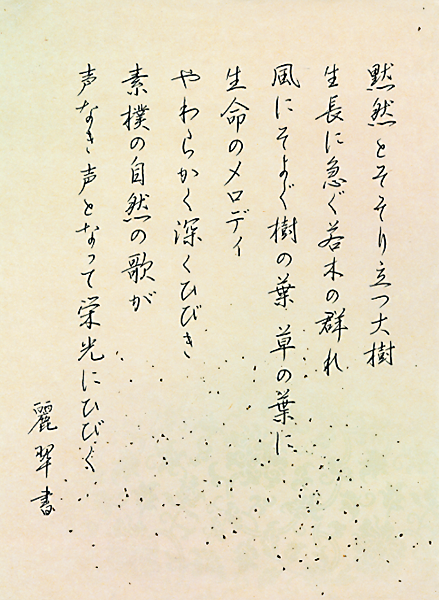 黙然とそそり立つ大樹
生長に急ぐ若木の群れ
風にそよぐ樹の葉 草の葉に
生命のメロディ
やわらかく深くひびき
素樸の自然の歌が
声なき声となって栄光にひびく
麗翠書